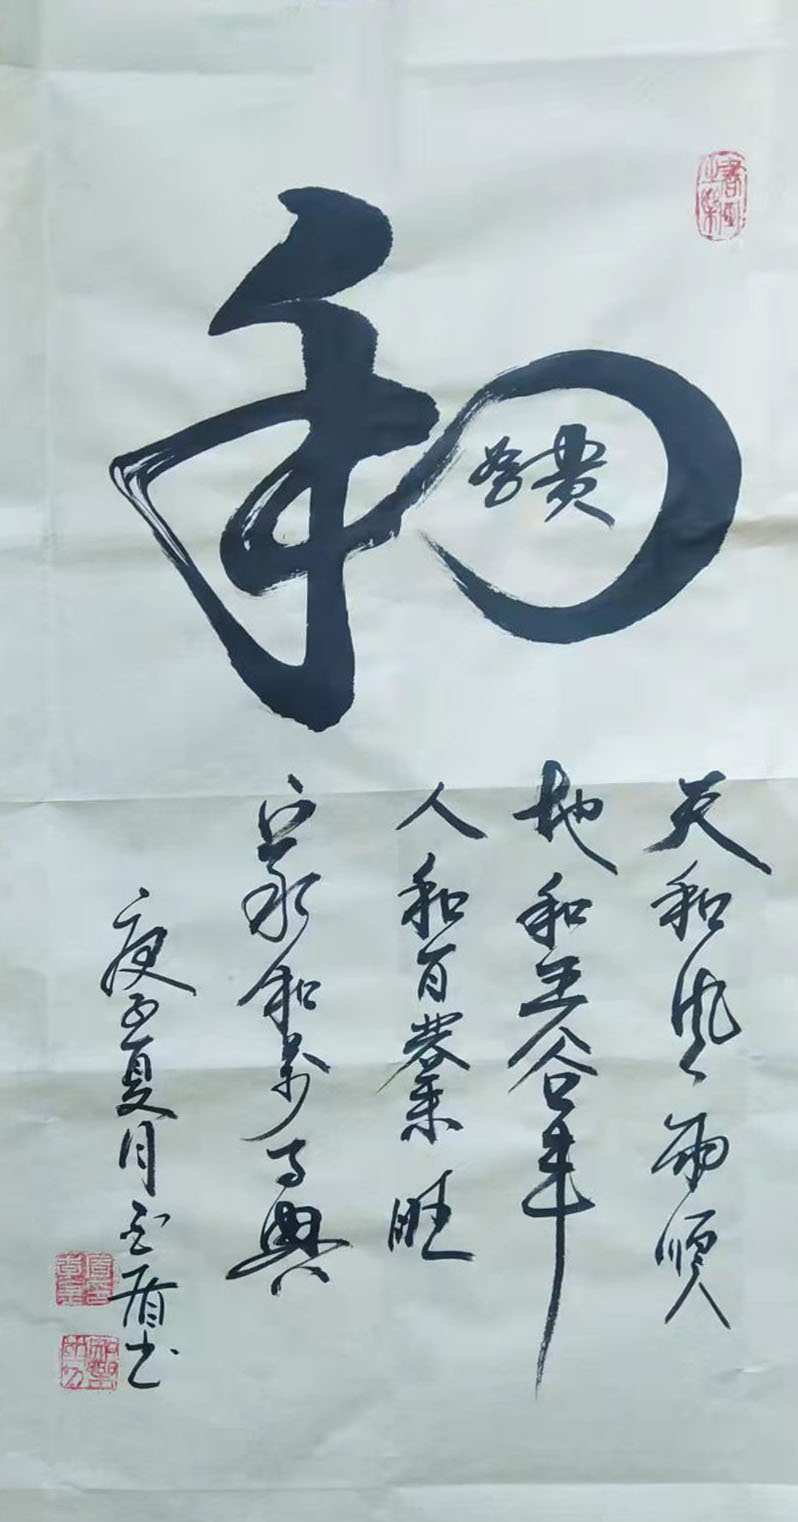 和
為貴
天和风雨順
地和五谷丰
人和百業旺
家和萬事興
庚子夏月